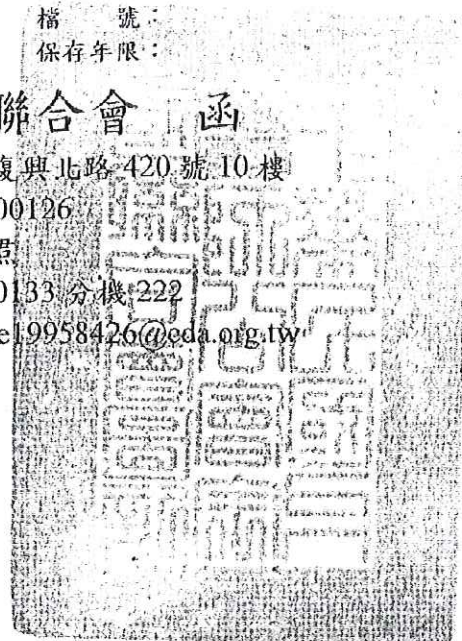 檔　　號：
保存年限：
聯合會　函
復興北路 420 號 10 樓
00126
照
0133 分機 222
e19958426@cda.org.tw